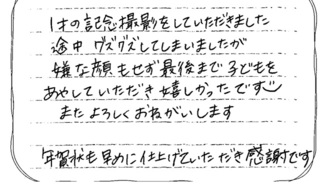 1才の記念撮影をしていただきました
途中グズグズしてしまいましたが
嫌な顔もせず最後まで子どもを
あやしていただき嬉しかったです
またよろしくおねがいします
年賀状も早めに仕上げていただき感謝です